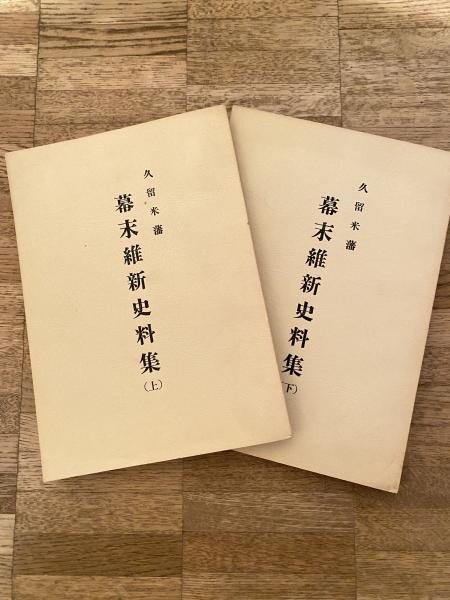 久留米藩
幕末維新史料集
(上)
久留米藩
幕末維新史料集
(下)